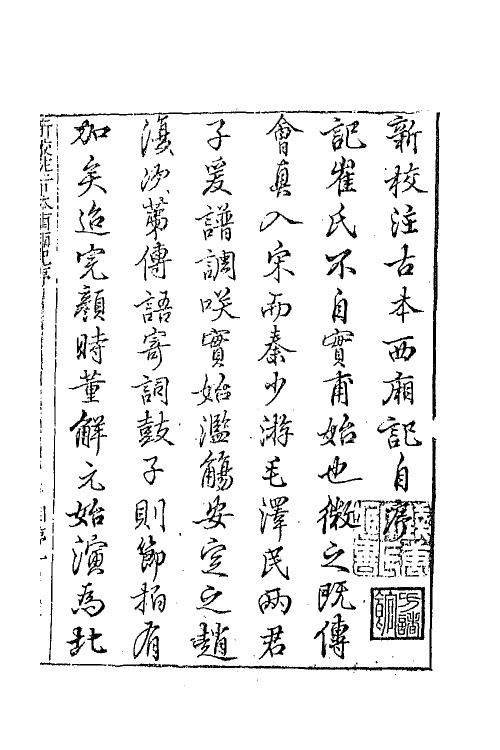 新校注古本西廂記自序
記崔氏不自實甫始也微之既傳
會真入宋而秦少游毛澤民兩君
子爰譜調咲實始濫觴安定之趙
復沙第傳語寄詞鼓子則節拍有
加矣迨完顏時董解元始演為北